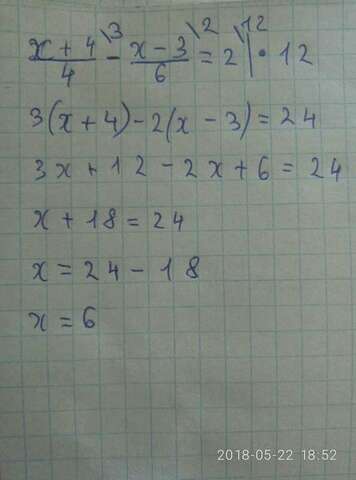 (x + 4)/4 \3 - (x - 3)/6 \2 = 2 \12 | · 12
3(x + 4) - 2(x - 3) = 24
3x + 12 - 2x + 6 = 24
x + 18 = 24
x = 24 - 18
x = 6
2018-05-22 18:52